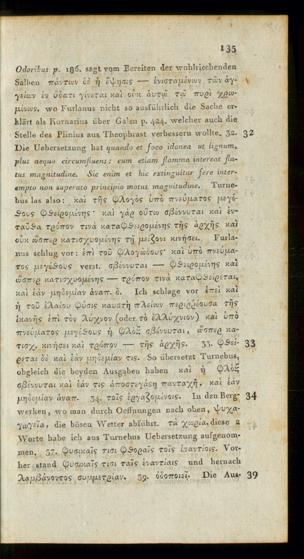 135
Odoribus p. 186. sagt vom Bereiten der wohlriechenden
Salben πάντων δὲ ἡ ἕψησις — ἐνισταμένων τῶν ἀγ-
γείων ἐν ὕδατι γίνεται καὶ οὐκ αὐτῷ τῷ πυρὶ χρω-
μένων. wo Furlanus nicht so ausführlich die Sache er-
klärt als Kornarius über Galen p. 424. welcher auch die
Stelle des Plinius aus Theophrast verbessern wollte. 32. 32
Die Uebersetzung hat quando et foco idonea ut lignum,
plus aequo circumfluens: cum etiam flamma intereat fla-
tus magnitudine. Sic enim et hic extinguitur fere inter-
empto non superato principio motus magnitudine. Turne-
bus las also: καὶ τῆς φλογὸς ὑπὸ πνεύματος μεγέ-
θους φθειρομένης· καὶ γὰρ οὕτω σβέννυται καὶ ἐν-
ταῦθα τρόπον τινὰ καταφθειρομένης τῆς ἀρχῆς καὶ
οὐκ ὥσπερ κατισχυομένης τῇ μείζονι κινήσει. Furla-
nus schlug vor: ἐπὶ τοῦ φλογώδους καὶ ὑπὸ πνεύμα-
τος μεγέθους verst. σβέννυται — φθειρομένης καὶ
ὥσπερ κατισχυομένης — τρόπον τινὰ καταφθείρεται,
καὶ ἐὰν μηδεμίαν ἀναπ. ἐ. Ich schlage vor ἐπεὶ καὶ
ἡ τοῦ ἐλαίου φύσις καυστὴ πλείων περιῤῥέουσα τῆς
ἱκανῆς ἐπὶ τὸν λύχνον (oder τὸ ἐλλύχνιον) καὶ ὑπὸ
πνεύματος μεγέθους ἡ φλὸξ σβέννυται, ὥσπερ κα-
τισχ. κινήσει καὶ τρόπον — τῆς ἀρχῆς. 33. φθεί- 33
ρεται δὲ καὶ ἐὰν μηδεμίαν τις. So übersetzt Turnebus,
obgleich die beyden Ausgaben haben καὶ ἡ φλὸξ
σβέννυται καὶ ἐάν τις ἀποστεγάσῃ πανταχῇ, καὶ ἐὰν
μηδεμίαν ἀναπ. 34. τοῖς ἐργαζομένοις. In den Berg- 34
werken, wo man durch Oefnungen nach oben, ψυχα-
γωγεῖα, die bösen Wetter abführt. τὰ χωρία, diese 2
Worte habe ich aus Turnebus Uebersetzung aufgenom-
men. 37. φυσικαῖς τισι φθοραῖς τοῖς ἐναντίοις. Vor-
her stand φυσικαῖς τισι ταῖς ἐναντίαις und hernach
λαμβάνοντος συμμετρίαν. 39. ὁδοποιεῖ. Die Aus- 39